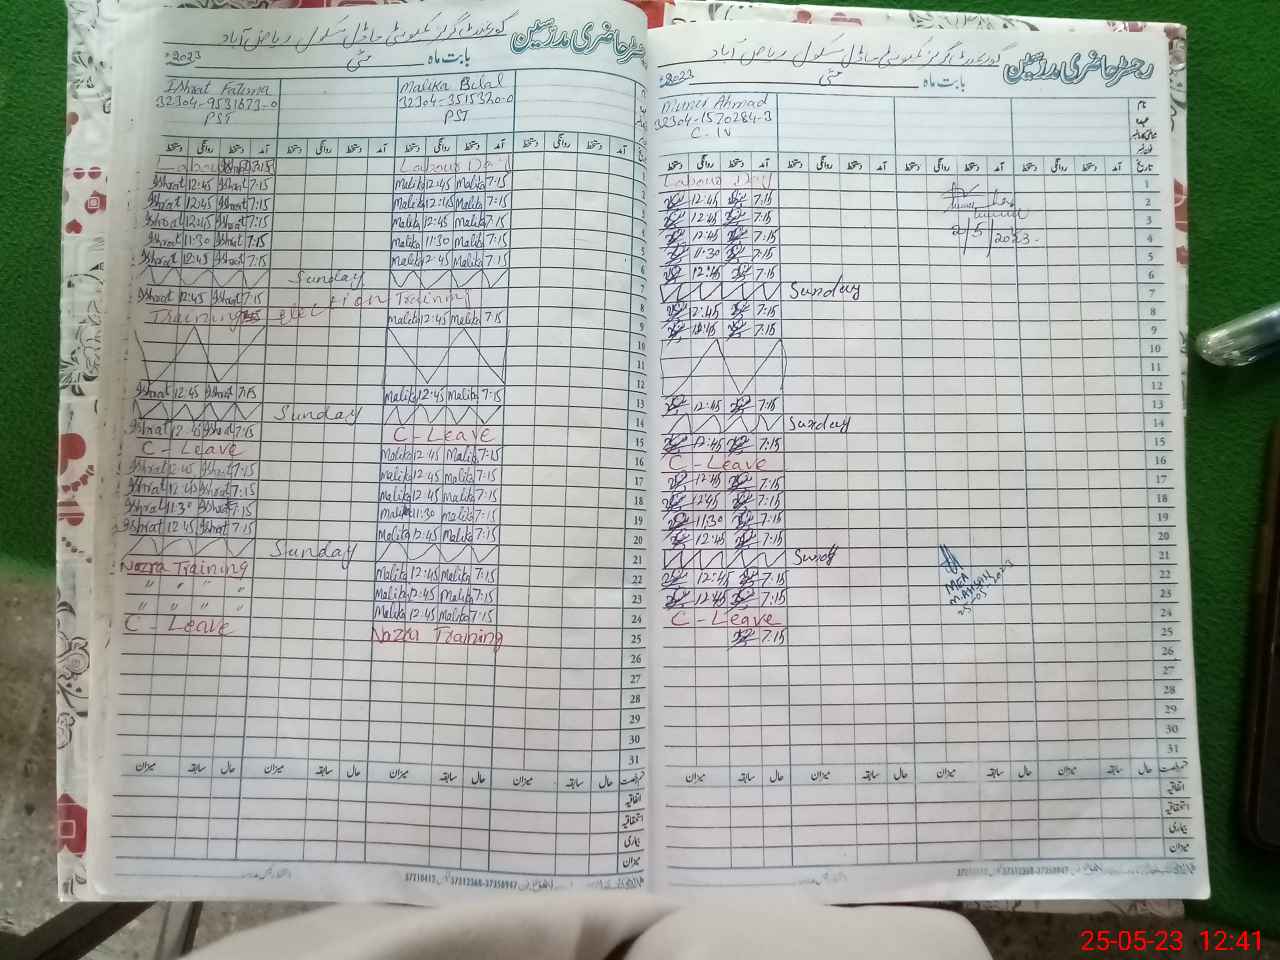 رجسٹر حاضری مدرسین
گورنمنٹ گرلز کمیونٹی ماڈل سکول ریاض آباد
بابت ماہ مئی 2023
Ishrat Fatima
32304-9531673-0
PST
Malika Bilal
32304-3515320-0
PST
آمد دستخط روانگی دستخط آمد دستخط روانگی دستخط
Labour Day
Ishrat 12:45 Ishrat 7:15 Malika 12:45 Malika 7:15
Ishrat 12:45 Ishrat 7:15 Malika 12:45 Malika 7:15 3
Ishrat 12:45 Ishrat 7:15 Malika 12:45 Malika 7:15 4
Ishrat 11:30 Ishrat 7:15 Malika 11:30 Malika 7:15 5
Ishrat 12:45 Ishrat 7:15 Malika 12:45 Malika 7:15 6
Sunday 7
Ishrat 12:45 Ishrat 7:15 Election Training 8
Training Election Malika 12:45 Malika 7:15 9
10
11
12
Ishrat 12:45 Ishrat 7:15 Malika 12:45 Malika 7:15 13
Sunday 14
Ishrat 12:45 Ishrat 7:15 C-Leave 15
C-Leave Malika 12:45 Malika 7:15 16
Ishrat 12:45 Ishrat 7:15 Malika 12:45 Malika 7:15 17
Ishrat 12:45 Ishrat 7:15 Malika 12:45 Malika 7:15 18
Ishrat 11:30 Ishrat 7:15 Malika 11:30 Malika 7:15 19
Ishrat 12:45 Ishrat 7:15 Malika 12:45 Malika 7:15 20
Sunday 21
Nazra Training Malika 12:45 Malika 7:15 22
" " " " Malika 12:45 Malika 7:15 23
" " " " Malika 12:45 Malika 7:15 24
C-Leave Nazra Training 25
26
27
28
29
30
31
حال سابقہ میزان حال سابقہ میزان حال سابقہ میزان حال سابقہ میزان
اتفاقیہ
استحقاقیہ
بیماری
میزان
37310417 37312368-37358947
رجسٹر حاضری مدرسین
گورنمنٹ گرلز کمیونٹی ماڈل سکول ریاض آباد
بابت ماہ مئی 2023
نام
Munir Ahmad
32304-1570284-3
C-IV
تاریخ آمد دستخط روانگی دستخط آمد دستخط روانگی دستخط
Labour Day 1
12:45 7:15 2
12:45 7:15 3
12:45 7:15 4
2/5/2023
11:30 7:15 5
12:45 7:15 6
Sunday 7
12:45 7:15 8
12:45 7:15 9
10
11
12
12:45 7:15 13
Sunday 14
12:45 7:15 15
C-Leave 16
12:45 7:15 17
12:45 7:15 18
11:30 7:15 19
12:45 7:15 20
Sunday 21
12:45 7:15 22
12:45 7:15 23
MEA
M.AHSAN
25-05-2023
C-Leave 24
7:15 25
26
27
28
29
30
31
حال سابقہ میزان حال سابقہ میزان حال سابقہ میزان حال سابقہ میزان
اتفاقیہ
استحقاقیہ
بیماری
میزان
37312368-37358947
25-05-23 12:41